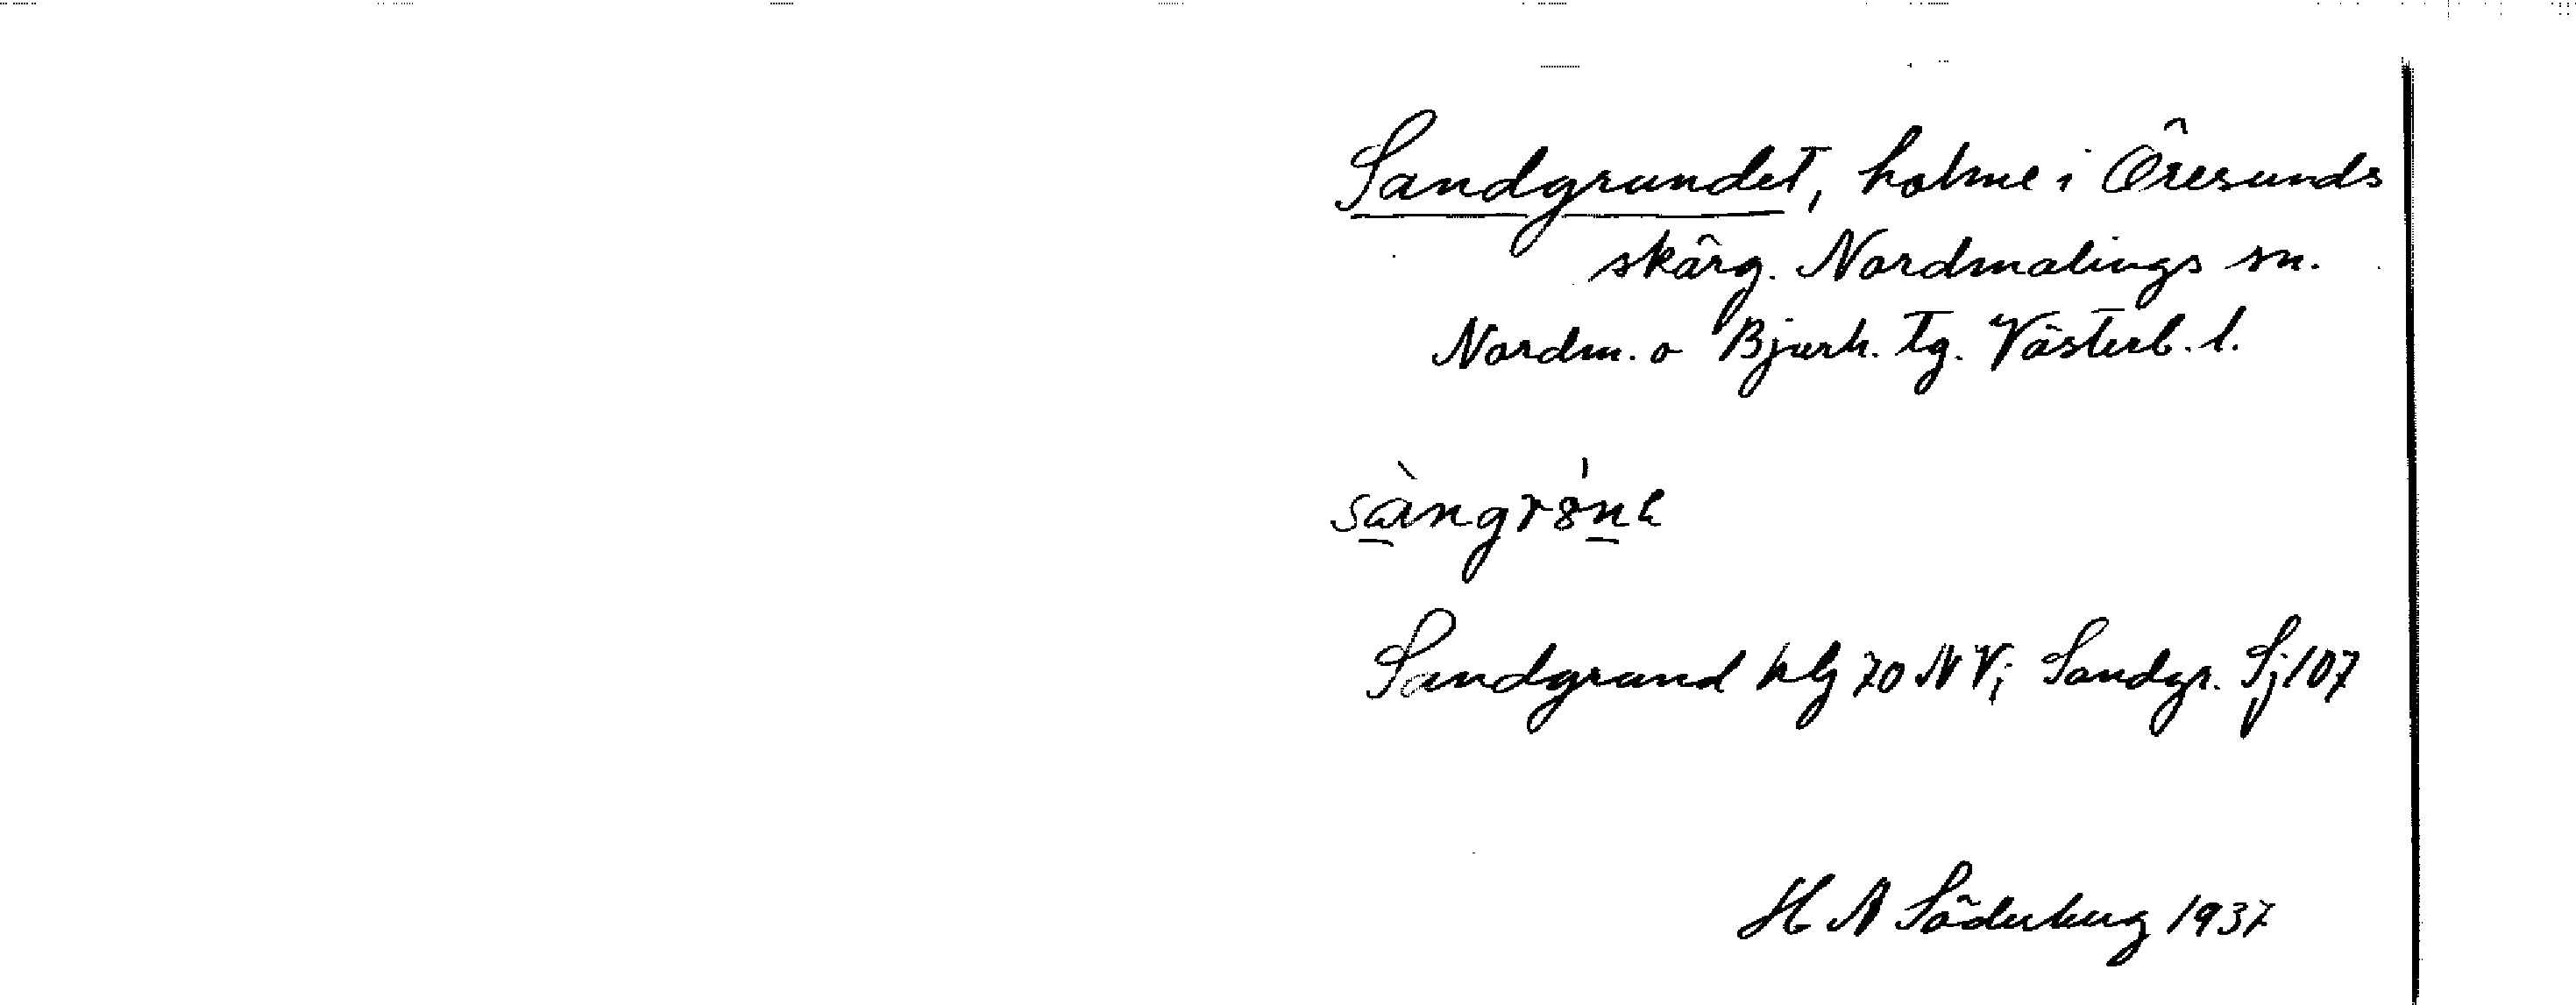 Sandgrundet, holme i Öresunds
skärg. Nordmalings sn.
Nordm. o Bjurh. tg. Västerb. l.
Sandgrund klg 70 NV; Sandgr. Sj 107
H N Söderberg 1937